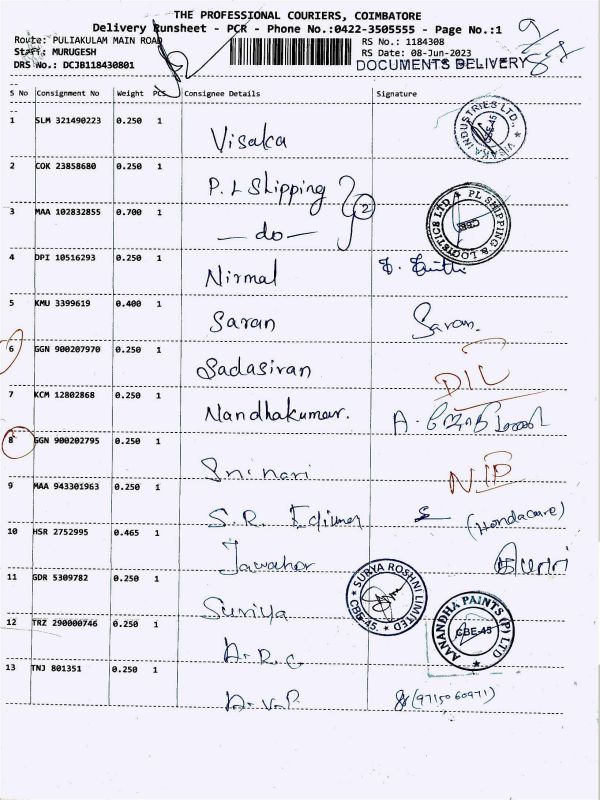 THE PROFESSIONAL COURIERS, COIMBATORE
Delivery Runsheet - PCR - Phone No.:0422-3505555 - Page No.:1
Route: PULIAKULAM MAIN ROAD
RS No.: 1184308
Staff: MURUGESH
RS Date: 08-Jun-2023
DRS No.: DCJB118430801
DOCUMENTS DELIVERY
S No Consignment No Weight PCS Consignee Details Signature
1 SLM 321490223 0.250 1 Visaka
VISAKA INDUSTRIES LTD., CBE-45
2 COK 23858680 0.250 1 P. L Shipping
2
3 MAA 102832855 0.700 1 — do —
PL SHIPPING & LOGISTICS LTD CBE
4 DPI 10516293 0.250 1 Nirmal
5 KMU 3399619 0.400 1 Saran Saran.
6 GGN 900207970 0.250 1 Sadasivan DIL
7 KCM 12802868 0.250 1 Nandhakumar.
8 GGN 900202795 0.250 1 Srinari NIP
9 MAA 943301963 0.250 1 S.R. (Hondacare)
10 HSR 2752995 0.465 1 Jawahar
11 GDR 5309782 0.250 1 Suriya
SURYA ROSHNI LIMITED CBE-45.
12 TRZ 290000746 0.250 1 A.R.C
AANANDHA PAINTS (P) LTD CBE-45
13 TNJ 801351 0.250 1 A.V.P (9715060971)